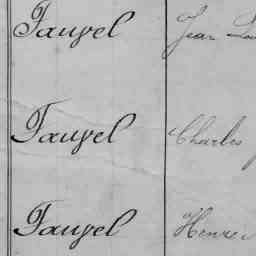 Fauvel Jean
Fauvel Charles
Fauvel Henri